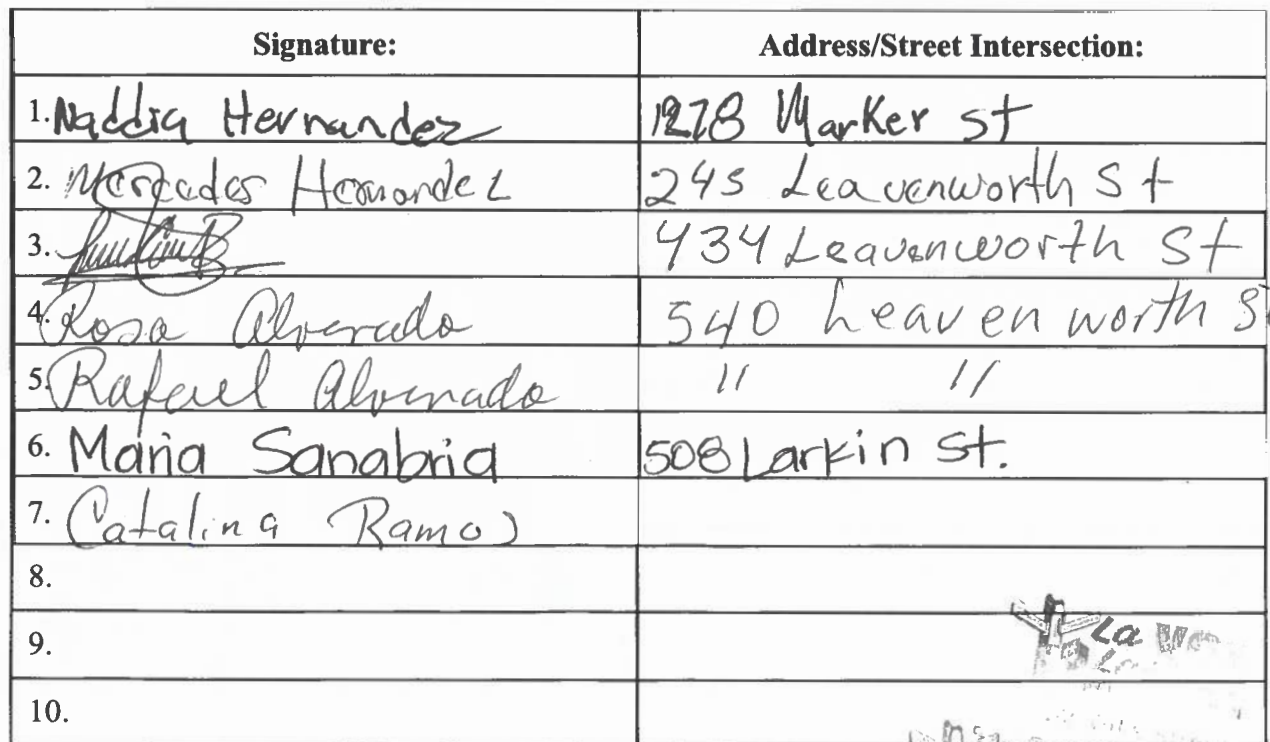 Signature: Address/Street Intersection:
1. Naddia Hernandez 1278 Marker st
2. Mercedes Hernandez 245 Leavenworth St
3. 434 Leavenworth St
4. Rosa Alvarado 540 Leavenworth S
5. Rafael Alvarado " "
6. Maria Sanabria 508 Larkin St.
7. Catalina Ramos
8.
9. La
10.